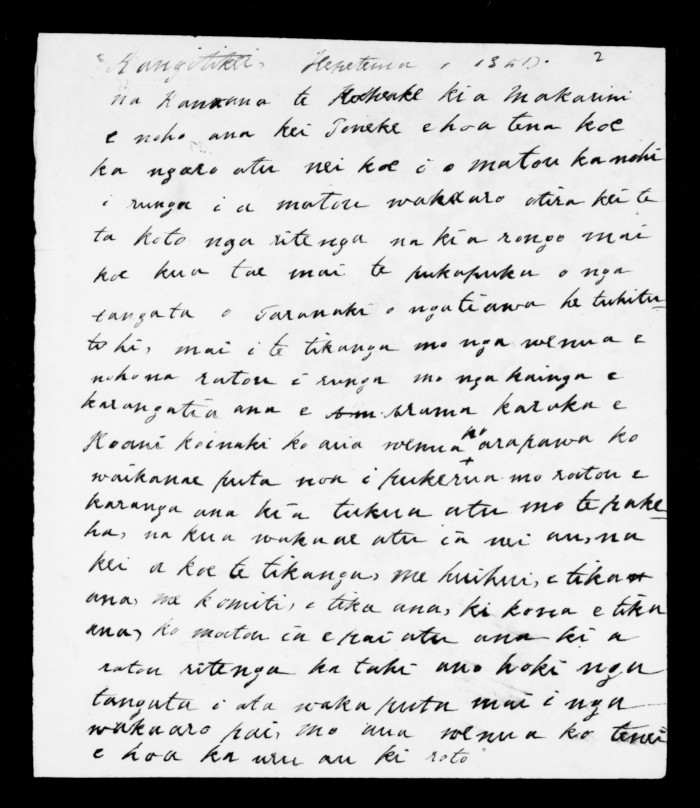 Rangitikei, Hepetema 1 2
na Kanana te Hoeake ki a Makarini
e noho ana kei Poneke e hoa tena koe
ka ngaro atu nei koe i o matou kanohi
i runga i a matou wakaaro otira kei te
ta koto nga ritenga na kia rongo mai
koe kua tae mai te pukapuka o nga
tangata o Taranaki o ngatiawa he tuhitu-
tohi, mai i te tikanga mo nga wenua e
nohona ratou i runga mo nga kainga e
karangatia ana e Arama karaka e
Hoani koinaki ko aua wenua ko arapawa ko
waikanae puta noa i pukerua mo ratou e
karanga ana kia tukua atu mo te pake-
ha, na kua wakaae atu ia nei au, na
kei a koe te tikanga, me huihui, e tika
ana, me komiti, e tika ana, ki kona e tika
ana, ko matou ia e pai atu ana ki a
ratou ritenga ka tahi ano hoki nga
tangata i ata waka puta mai i nga
wakaaro pai, mo aua wenua ko tenei
e hoa ka uru au ki roto